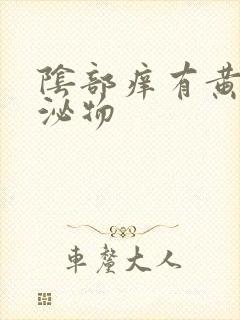 陰部痒有黄
泌物
車釐大人